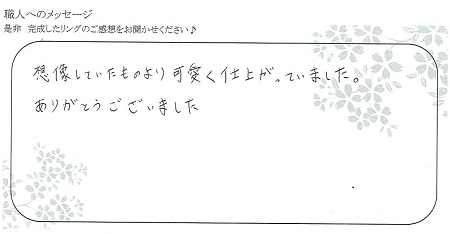 職人へのメッセージ
是非 完成したリングのご感想をお聞かせください♪
想像していたものより可愛く仕上がっていました。
ありがとうございました